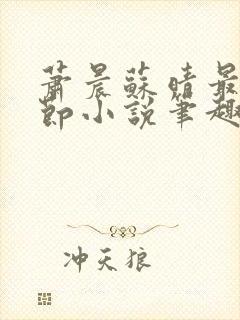 萧晨苏晴最
节小说笔趣
冲天狼